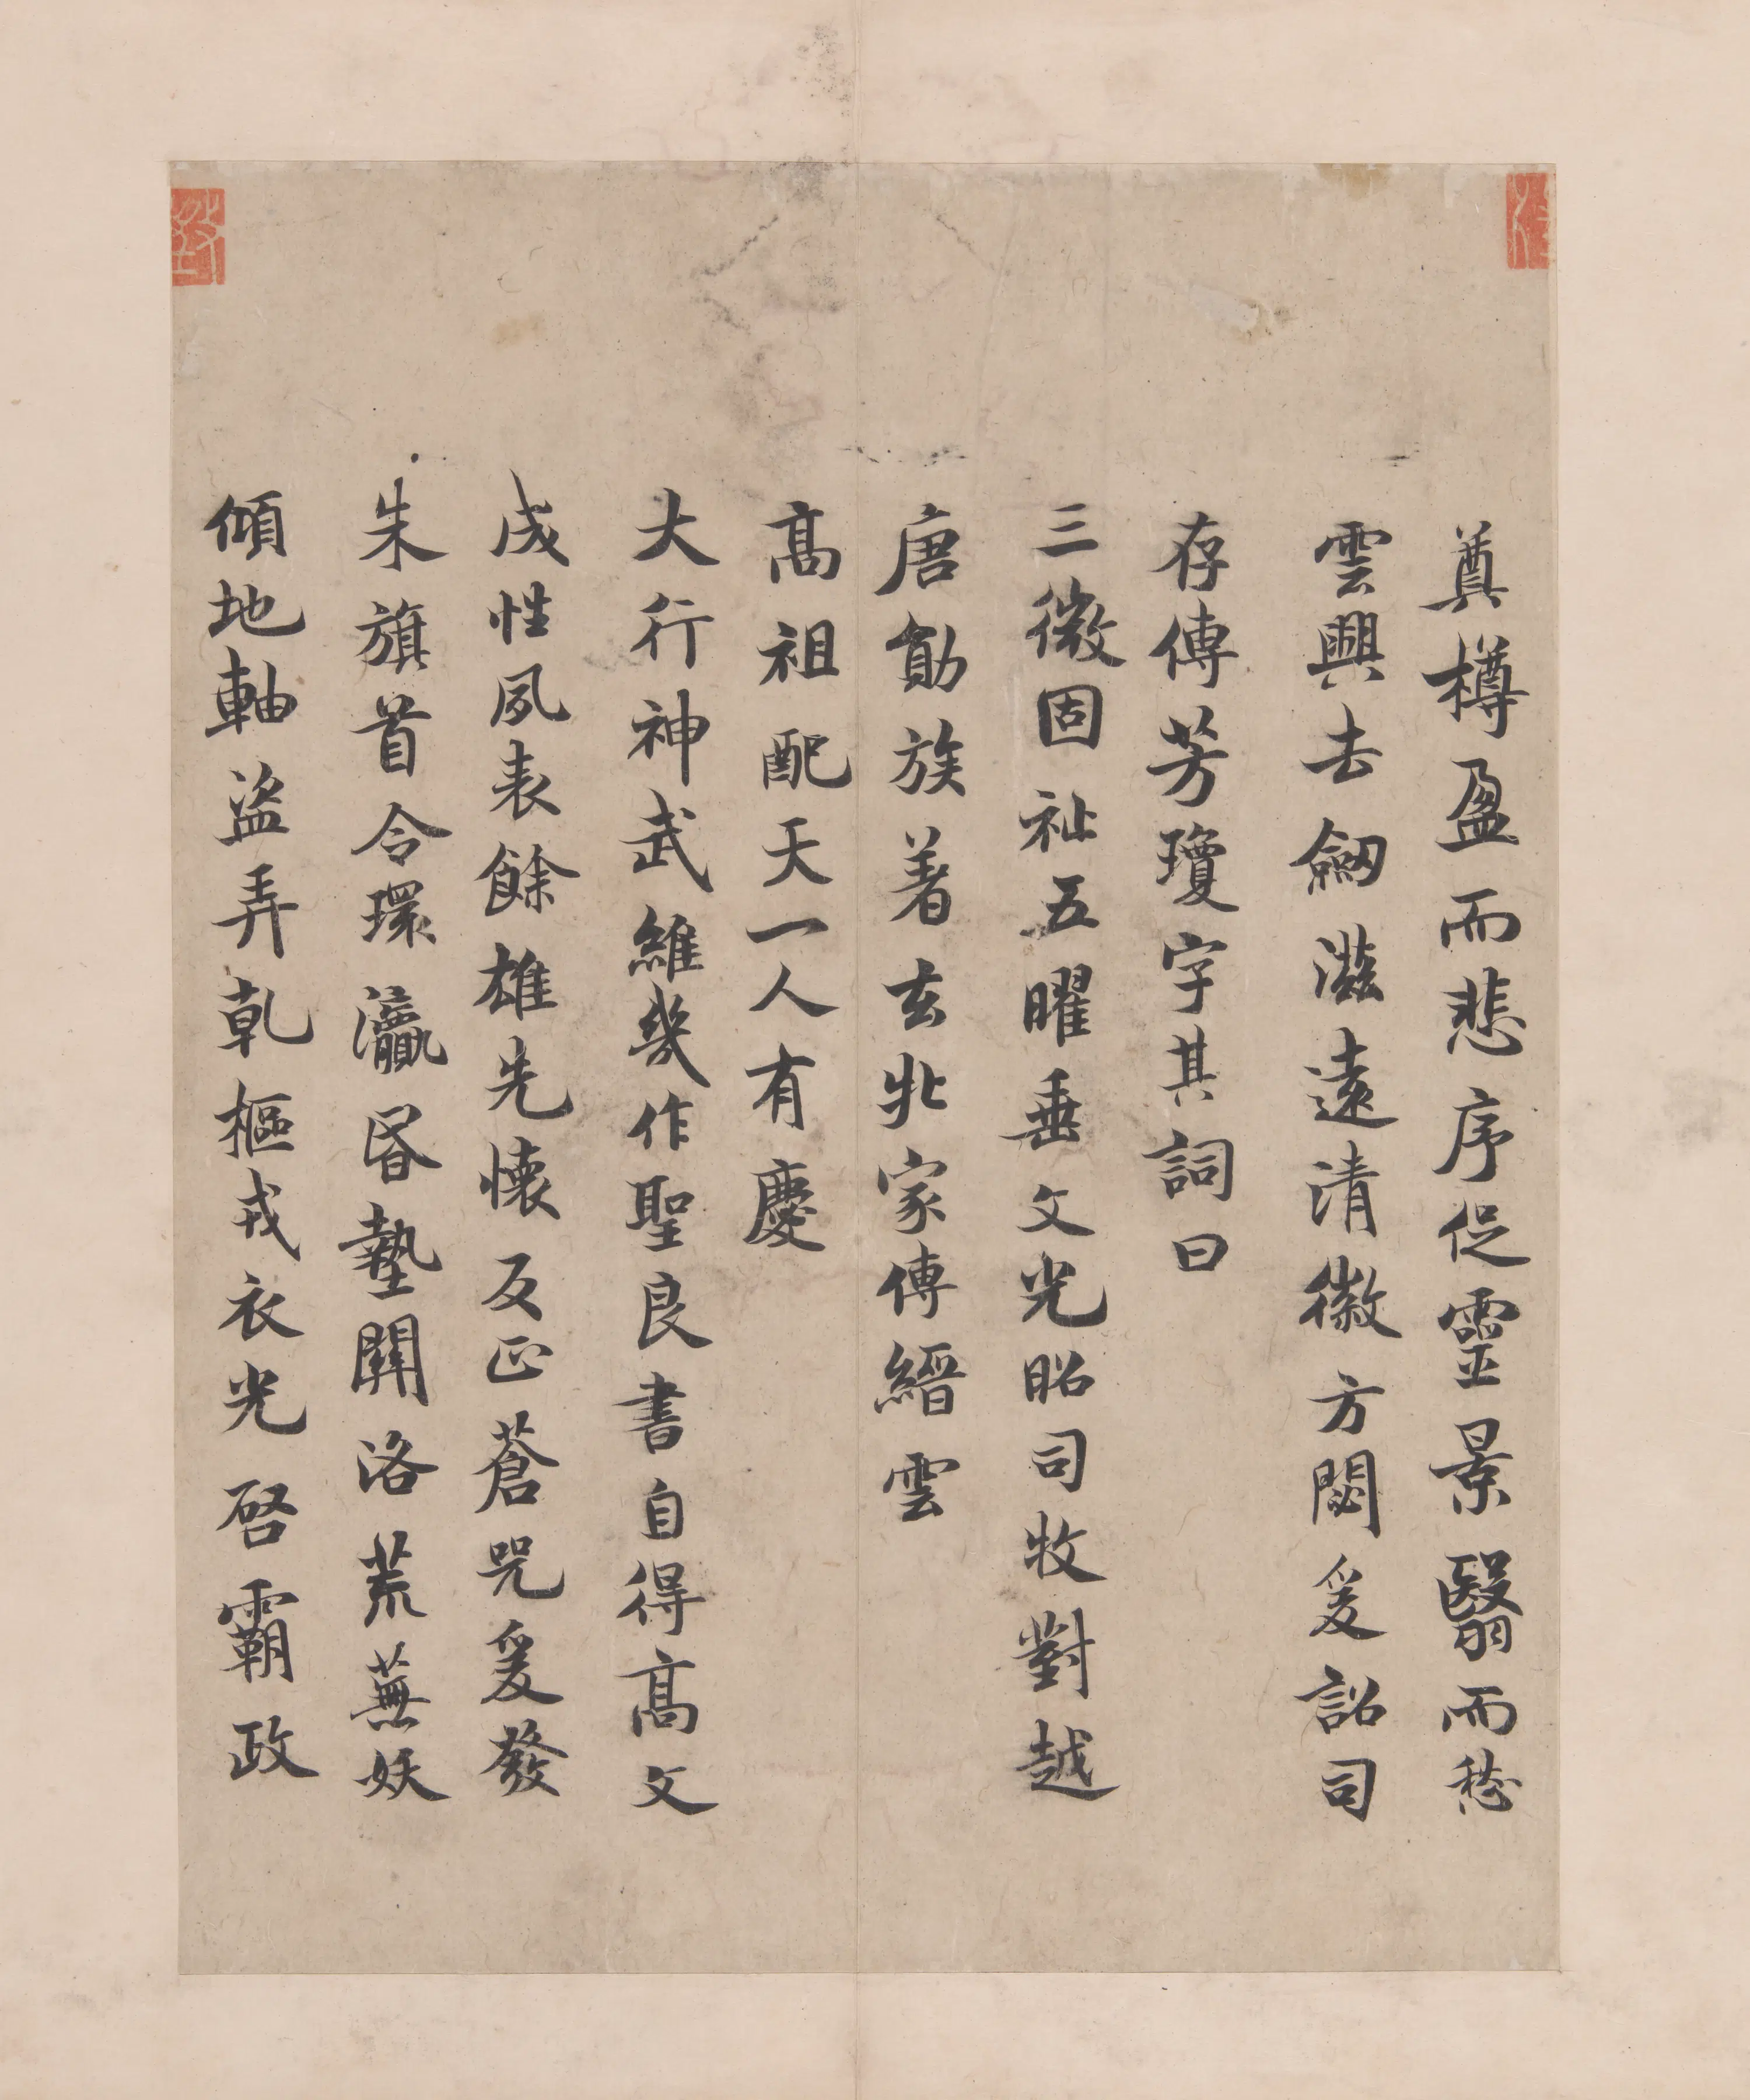 奠樽盈而悲序促靈景翳而愁
雲興去劒滋遠清徽方閟爰詔司
存傳芳瓊字其詞曰
三微固祉五曜垂文光昭司牧對越
唐勛族著玄牝家傳縉雲
髙祖配天一人有慶
大行神武維幾作聖良書自得髙文
成性夙表餘雄先懷反正蒼咒爰發
朱旗首令環瀛昏墊關洛荒蕪妖
傾地軸盜弄乹樞戎衣光啓霸政